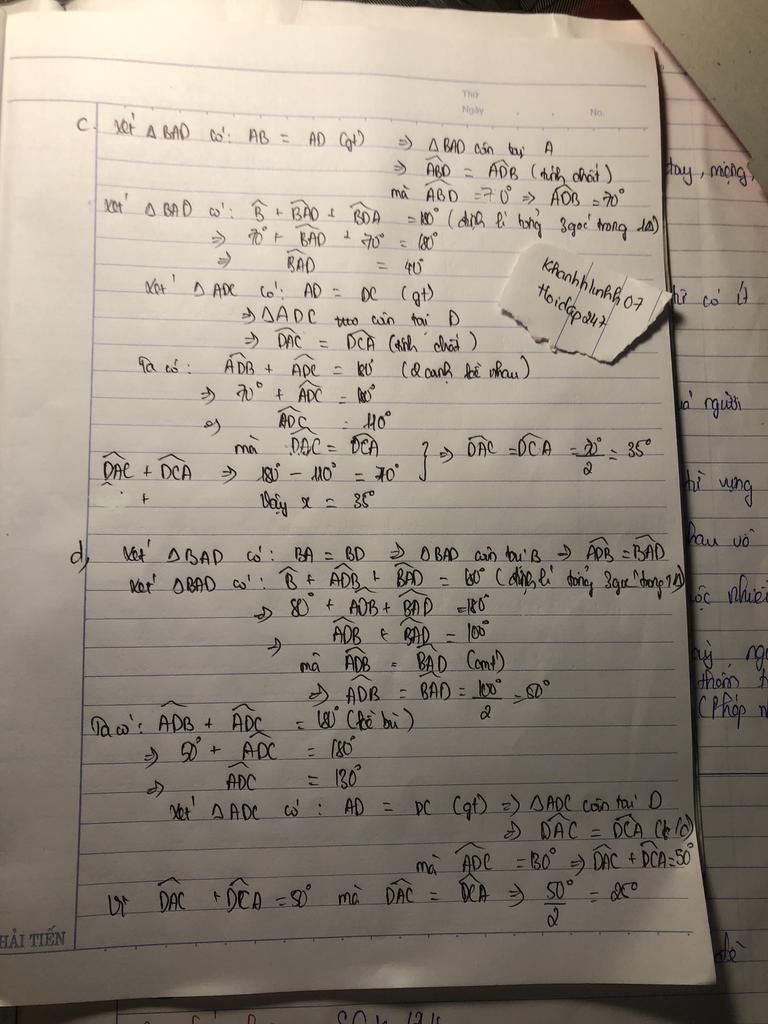 Thứ
Ngày . . No.
c. Xét ΔBAD có: AB = AD (gt) ⇒ ΔBAD cân tại A
⇒ ABD = ADB (tính chất)
mà ABD = 70° ⇒ ADB = 70°
Xét ΔBAD có: B + BAD + BDA = 180° (định lí tổng 3 góc trong 1Δ)
⇒ 70° + BAD + 70° = 180°
⇒ BAD = 40°
Xét ΔADC có: AD = DC (gt)
⇒ ΔADC cân tại D
⇒ DAC = DCA (tính chất)
Khanhhlinhh07
Hoidap247
Ta có: ADB + ADC = 180° (2 cạnh kề nhau)
⇒ 70° + ADC = 180°
⇒ ADC = 110°
mà DAC = DCA } ⇒ DAC = DCA = 70°/2 = 35°
DAC + DCA ⇒ 180° − 110° = 70°
+ Vậy x = 35°
d, Xét ΔBAD có: BA = BD ⇒ ΔBAD cân tại B ⇒ ADB = BAD
Xét ΔBAD có: B + ADB + BAD = 180° (định lí tổng 3 góc trong 1Δ)
⇒ 80° + ADB + BAD = 180°
⇒ ADB + BAD = 100°
mà ADB = BAD (cmt)
⇒ ADB = BAD = 100°/2 = 50°
Ta có: ADB + ADC = 180° (kề bù)
⇒ 50° + ADC = 180°
⇒ ADC = 130°
Xét ΔADC có: AD = DC (gt) ⇒ ΔADC cân tại D
⇒ DAC = DCA (t/c)
mà ADC = 130° ⇒ DAC + DCA = 50°
Vì DAC + DCA = 50° mà DAC = DCA ⇒ 50°/2 = 25°
HẢI TIẾN
tay, mọng,
có ít
người
vụng
hau vô
ộc nhiê
thơm t
(Pháp n